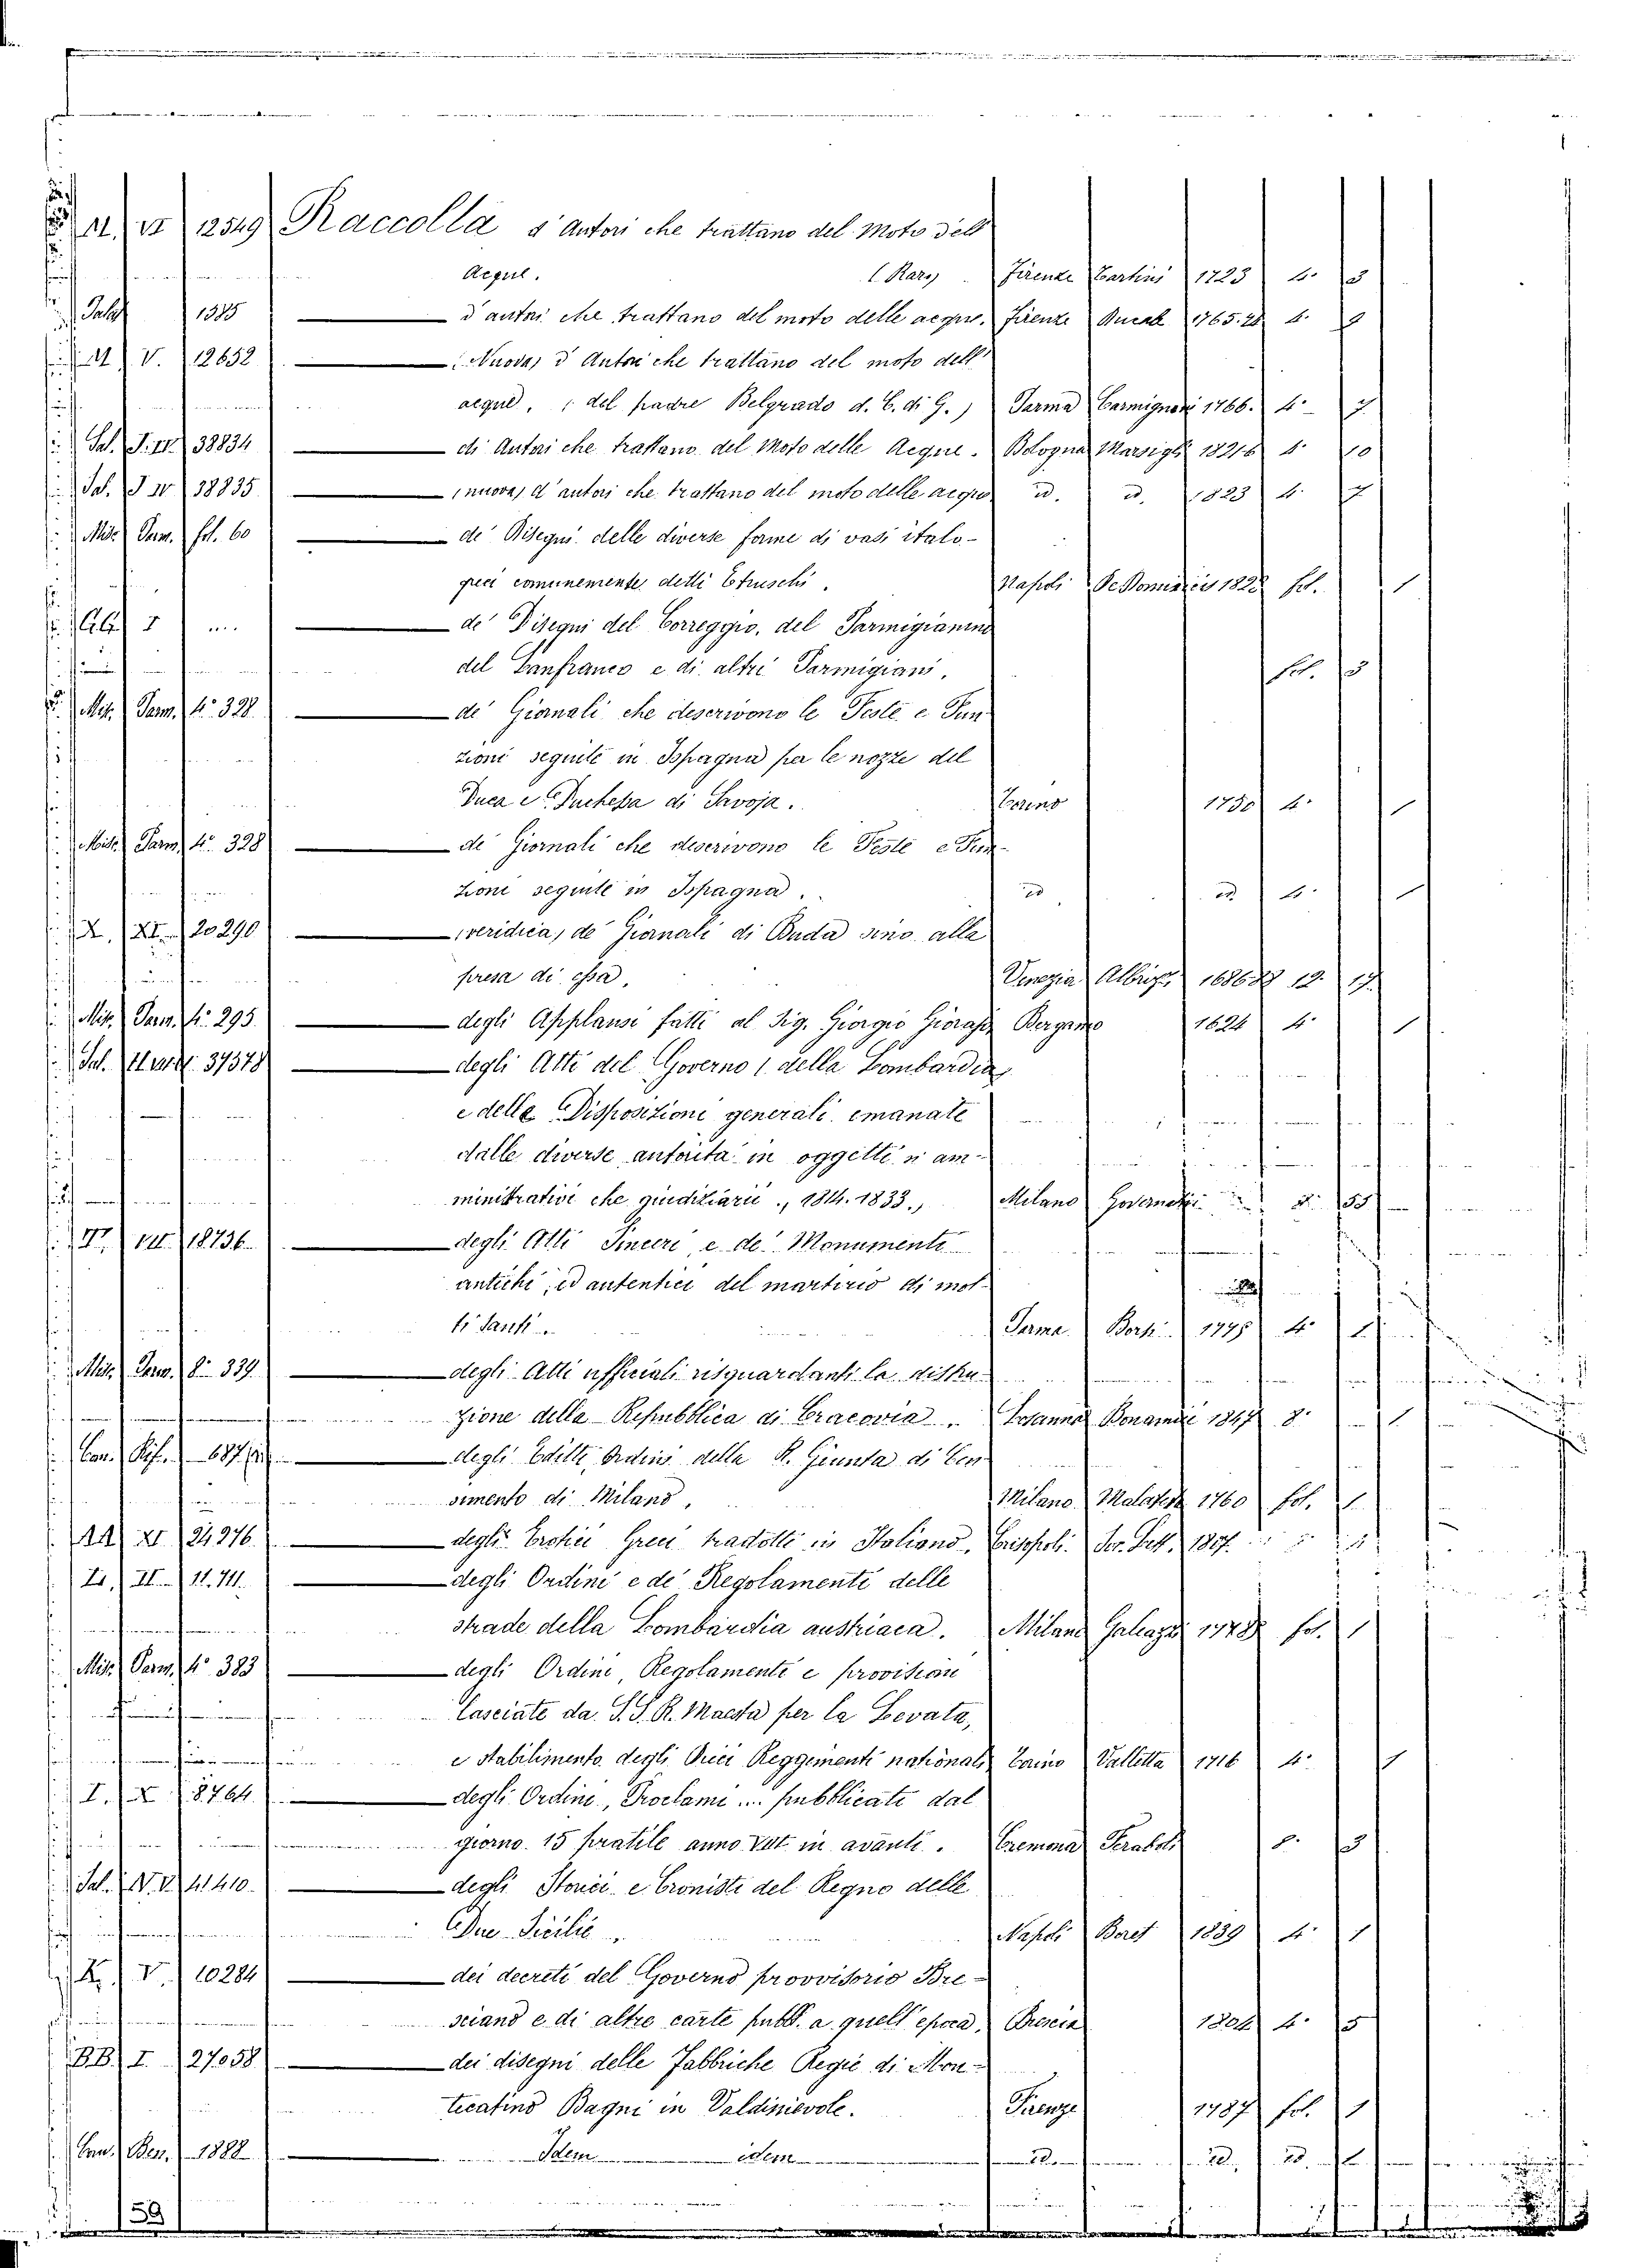 12549 Raccolta d'Autori che trattano del Moto dell'
Acque. (Rara) Firenze Tartini 1723 4.° 3
1385 d'autori che trattano del moto delle acque. Firenze 1765. 4. 9
V. 12652 (Nuova) d'Autori che trattano del moto dell'
acque, (del padre Belgrado d. C. di G.) Parma Carmignani 1766. 4.° 7
Sal. 38834 di Autori che trattano del Moto delle Acque. Bologna Marsigli 1821 4. 10
Sal. 38835 (nuova) d'autori che trattano del moto delle acque id. id. 1823 4. 7
Misc. Parm. fol. 60 de' Disegni delle diverse forme di vasi italo-
greci comunemente detti Etruschi. Napoli fol. 1
de' Disegni del Correggio, del Parmigianino
del Lanfranco e di altri Parmigiani. fol. 3
Mis. Parm. 4.° 328 de' Giornali che descrivono le Feste e Fun
zioni seguite in Ispagna per le nozze del
Duca e Duchessa di Savoja. Torino 1750 4. 1
Misc. Parm. 4.° 328 de' Giornali che descrivono le Feste e Fun-
zioni seguite in Ispagna. id id. 4. 1
X. XI. 20290 (veridica) de' Giornali di Buda sino alla
presa di essa. Venezia Albrizzi 12. 17
Mis. Parm. 4.° 295 degli Applausi fatti al Sig. Giorgio Bergamo 1624 4. 1
Sal. 37378 degli Atti del Governo (della Lombardia)
e delle Disposizioni generali emanate
dalle diverse autorità in oggetti sì am-
ministrativi che giudiziarii, 1814. 1833. Milano
18736 degli Atti Sinceri e de' Monumenti
antichi, ed autentici del martirio di mol-
ti Santi. Parma 4.°
Misc. Parm. 8.° 339 degli Atti ufficiali risguardanti la distru-
zione della Repubblica di Cracovia. Losanna Bonamici 1847 8. 1
degli Editti, Ordini della R. Giunta di Cen-
simento di Milano. Milano Malatesta 1760 fol. 1
AA XI 24276 degli Erotici Greci tradotti in Italiano.
II. 11.711. degli Ordini e de' Regolamenti delle
strade della Lombardia austriaca. Milano Galeazzi fol. 1
Mis. Parm. 4.° 383 degli Ordini, Regolamenti e provisioni
lasciate da S. S. R. Maestà per la Levata,
e Stabilimento degli Dieci Reggimenti nationali Torino Valletta 1716 4. 1
I. X 8764 degli Ordini, Proclami ... pubblicati dal
giorno 15 pratile anno in avanti. Cremona 8. 3
Sal. N.V. 41410 degli Storici e Cronisti del Regno delle
Due Sicilie. Napoli 1839 4. 1
V. 10284 dei decreti del Governo provvisorio Bre-
sciano e di altre carte pubb. a quell'epoca. Brescia 1804 4. 5
BB. I. 27058 dei disegni delle Fabbriche Regie di Mon-
ticatino Bagni in Valdinievole. Firenze 1787 fol. 1
1888 Idem idem id. id. id. 1
59